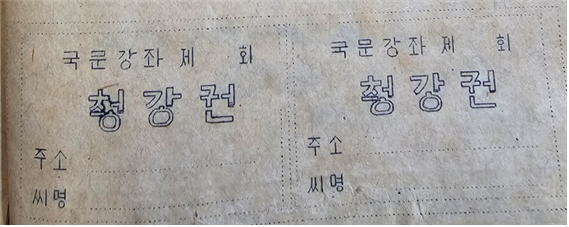 국문강좌제 회
청강권
주소
씨명
국문강좌제 회
청강권
주소
씨명